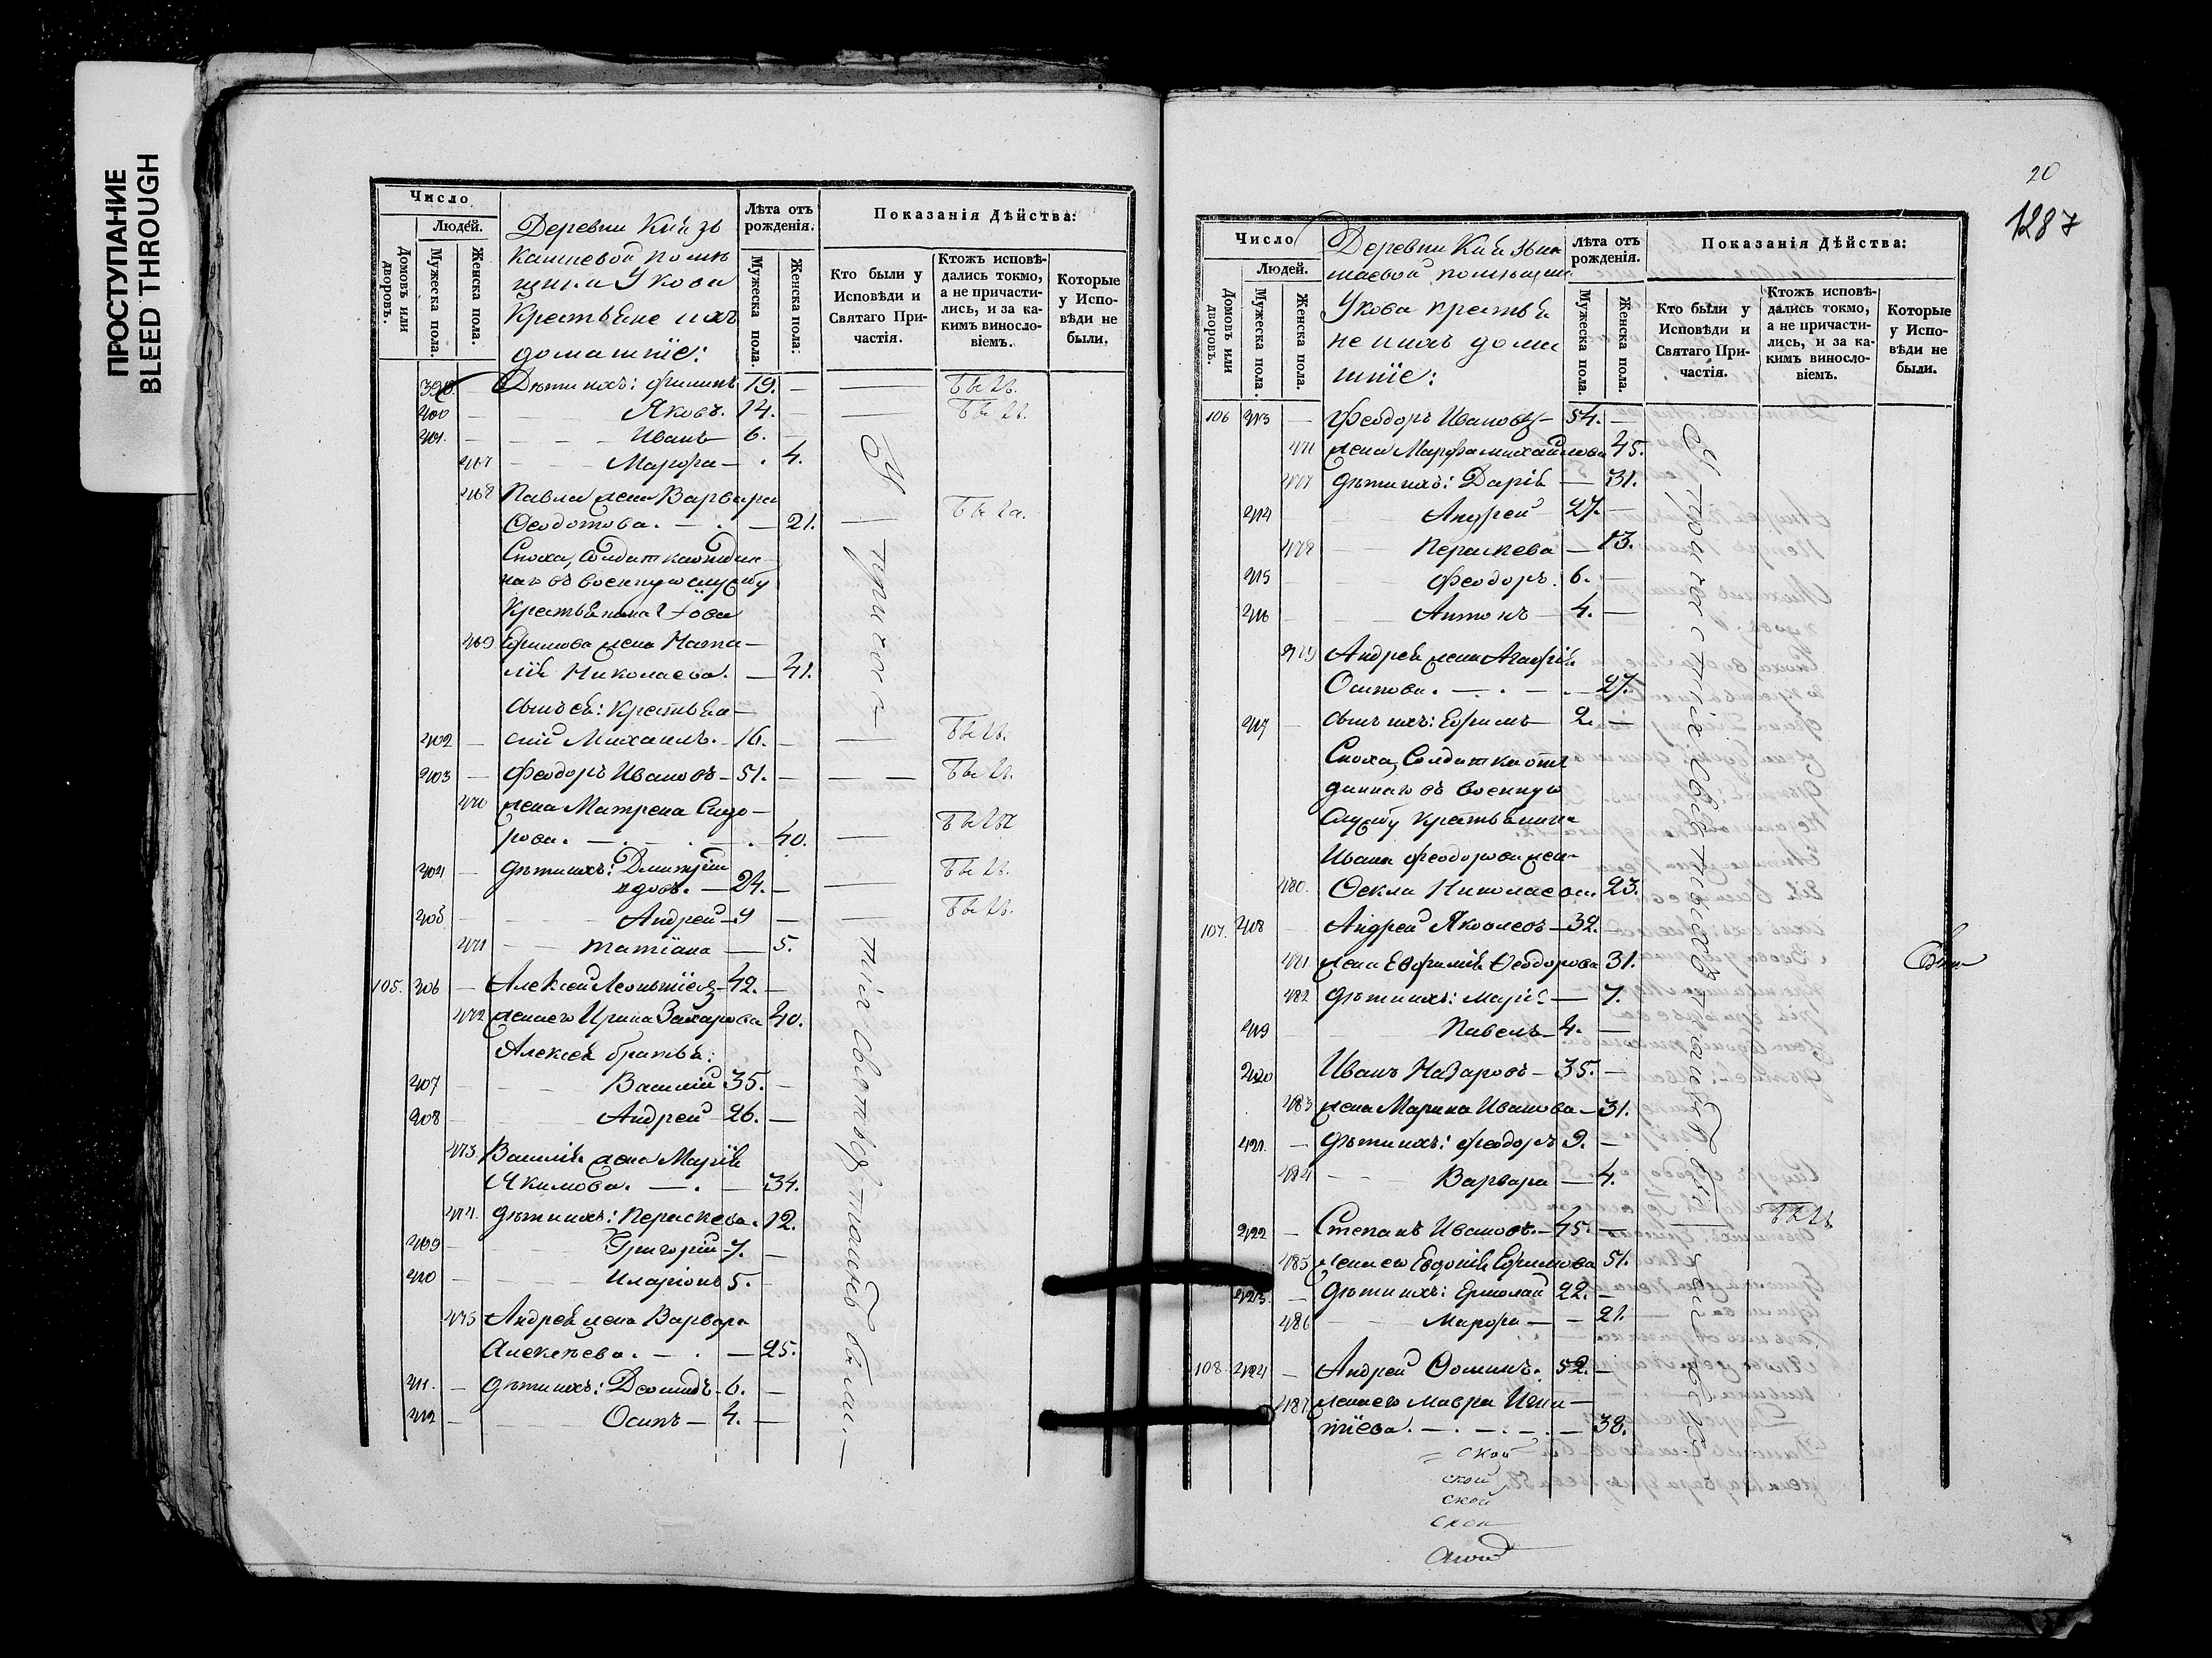 ПРОСТУПАНИЕ
BLEED THROUGH
Число
Людей.
Домовъ или дворовъ.
Мужеска пола.
Женска пола.
Деревни Киязь
Кашевой помѣ
щика Укова
Крестьяне и ихъ
домашніе:
Лѣта отъ рожденія.
Мужеска пола
Женска пола:
Показанія Дѣйства:
Кто были у Исповѣди и Святаго Причастія.
Ктожъ исповѣдались токмо, а не причастились, и за какимъ винословіемъ.
Которые у Исповѣди не были.
Дѣти ихъ: Филипъ 19. Былъ.
400 Яковъ. 14. Былъ.
401. Иванъ 6.
467 Марфа 4.
468 Павла жена Варвара
Ѳеодотова. 21. Была.
Сноха, Солдатка отдан
наго въ военную службу
Крестьянина
469 Ефимова жена Ната
лія Николаева. 41.
сынъ ея: Крестьян
402 скій Михаилъ. 16. Былъ.
403 Ѳеодоръ Ивановъ 51. Былъ.
470 жена Матрена Сидо
рова. 40. Была
404 дѣти ихъ: Дмитрій
вдовъ. 24. Былъ.
405 Андрей 9 Былъ.
471 Татіана 5.
105. 406 Алексей Леонтіевъ 42.
472 жена его Ирина Захарова 40.
Алексея братья:
407 Василій 35.
408 Андрей 26.
473. Василія жена Марія
Якимова. 34.
474. дѣти ихъ: Пераскева. 12.
409 Григорій 7.
410 Иларіонъ 5.
475 Андрея жена Варвара
Алексѣева. 25.
411. дѣти ихъ: Деомидъ 6.
412 Осипъ 4.
У причастія святыхъ таинъ были.
20
1287
Число
Людей.
Домовъ или дворовъ.
Мужеска пола
Женска пола.
Деревни Киязька
шевой помѣщика
Укова крестья
не и ихъ дома
шніе:
Лѣта отъ рожденія.
Мужеска пола
Женска пола.
Показанія Дѣйства:
Кто были у Исповѣди и Святаго Причастія.
Ктожъ исповѣдались токмо, а не причастились, и за какимъ винословіемъ.
Которые у Исповѣди не были.
106 413 Ѳеодоръ Ивановъ 54.
476 жена Марфа Михайлова 45.
477 дѣти ихъ: Дарія 31.
414 Андрей 27.
478 Пераскева 13.
415 Ѳеодоръ. 6.
416 Антонъ 4.
479 Андрея жена Агафія
Осипова. 27.
417 сынъ ихъ: Ефимъ 2.
Сноха, Солдатка отд
аннаго въ военную
Службу Крестьянина
Ивана Ѳеодорова жен
480. Ѳекла Николаева. 23.
107. 418 Андрей Яковлевъ 32.
481 жена Евфимія Ѳеодорова 31.
482 дѣти ихъ: Марія 7.
419 Павелъ 4.
420 Иванъ Назаровъ 35.
483 жена Марина Иванова 31.
421. дѣти ихъ: Ѳеодоръ 9.
484 Варвара 4.
422 Степанъ Ивановъ. 45. Былъ
485 жена его Евдокія Ефимова 51.
423. дѣти ихъ: Ермолай 22.
486 Марфа 21.
108. 424 Андрей Ѳоминъ. 52.
487 жена его Мавра Игна
тіева. 38.
У причастія святыхъ таинъ были
ской
ской
ской
ской